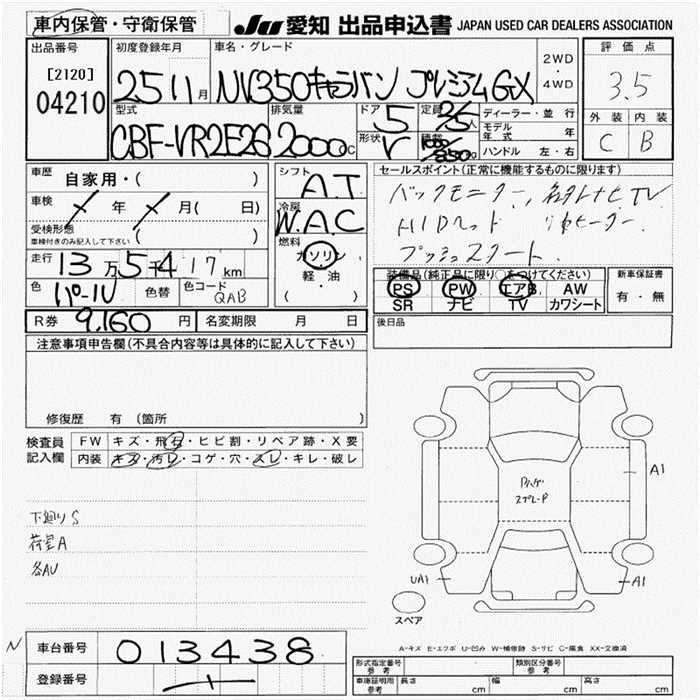 車内保管・守衛保管
JU 愛知 出品申込書 JAPAN USED CAR DEALERS ASSOCIATION
出品番号 初度登録年月 車名・グレード 評価点
[2120] 2WD・4WD
04210 25 11月 NV350キャラバン プレミアムGX 3.5
型式 排気量 ドア 定員 ディーラー・並行 外装 内装
CBF-VR2E26 2000cc 5 2/5人 モデル年式 年 C B
形状 V 積載 ハンドル 左・右
車歴 自家用・( ) シフト AT セールスポイント(正常に機能するものに限ります)
車検 年 月( 日) 冷房 W.A.C バックモニター, TV
受検形態 HIDヘッド
車検付きのみ記入して下さい ( ) 燃料 ガソリン プッシュスタート
走行 13万5千417km 軽・油 装備品(純正品に限り○をつけてください) 新車保証書
色 パール 色替 色コード QAB ( ) PS PW エアB AW 有・無
SR ナビ TV カワシート
R券 9,160円 名変期限 月 日 後日品
注意事項申告欄(不具合内容等は具体的に記入して下さい)
修復歴 有 (箇所 )
検査員 FW キズ・飛石・ヒビ割・リペア跡・X要
記入欄 内装 キズ・汚レ・コゲ・穴・スレ・キレ・破レ
A1
下廻りS
荷室A
各AU
UA1 A1
スペア
N 車台番号 013438
A-キズ E-エクボ U-凹み W-補修跡 S-サビ C-腐食 XX-交換済
登録番号
形式指定番号 参考 類別区分番号 参考
車庫証明用 参考 長さ cm 幅 cm 高さ cm